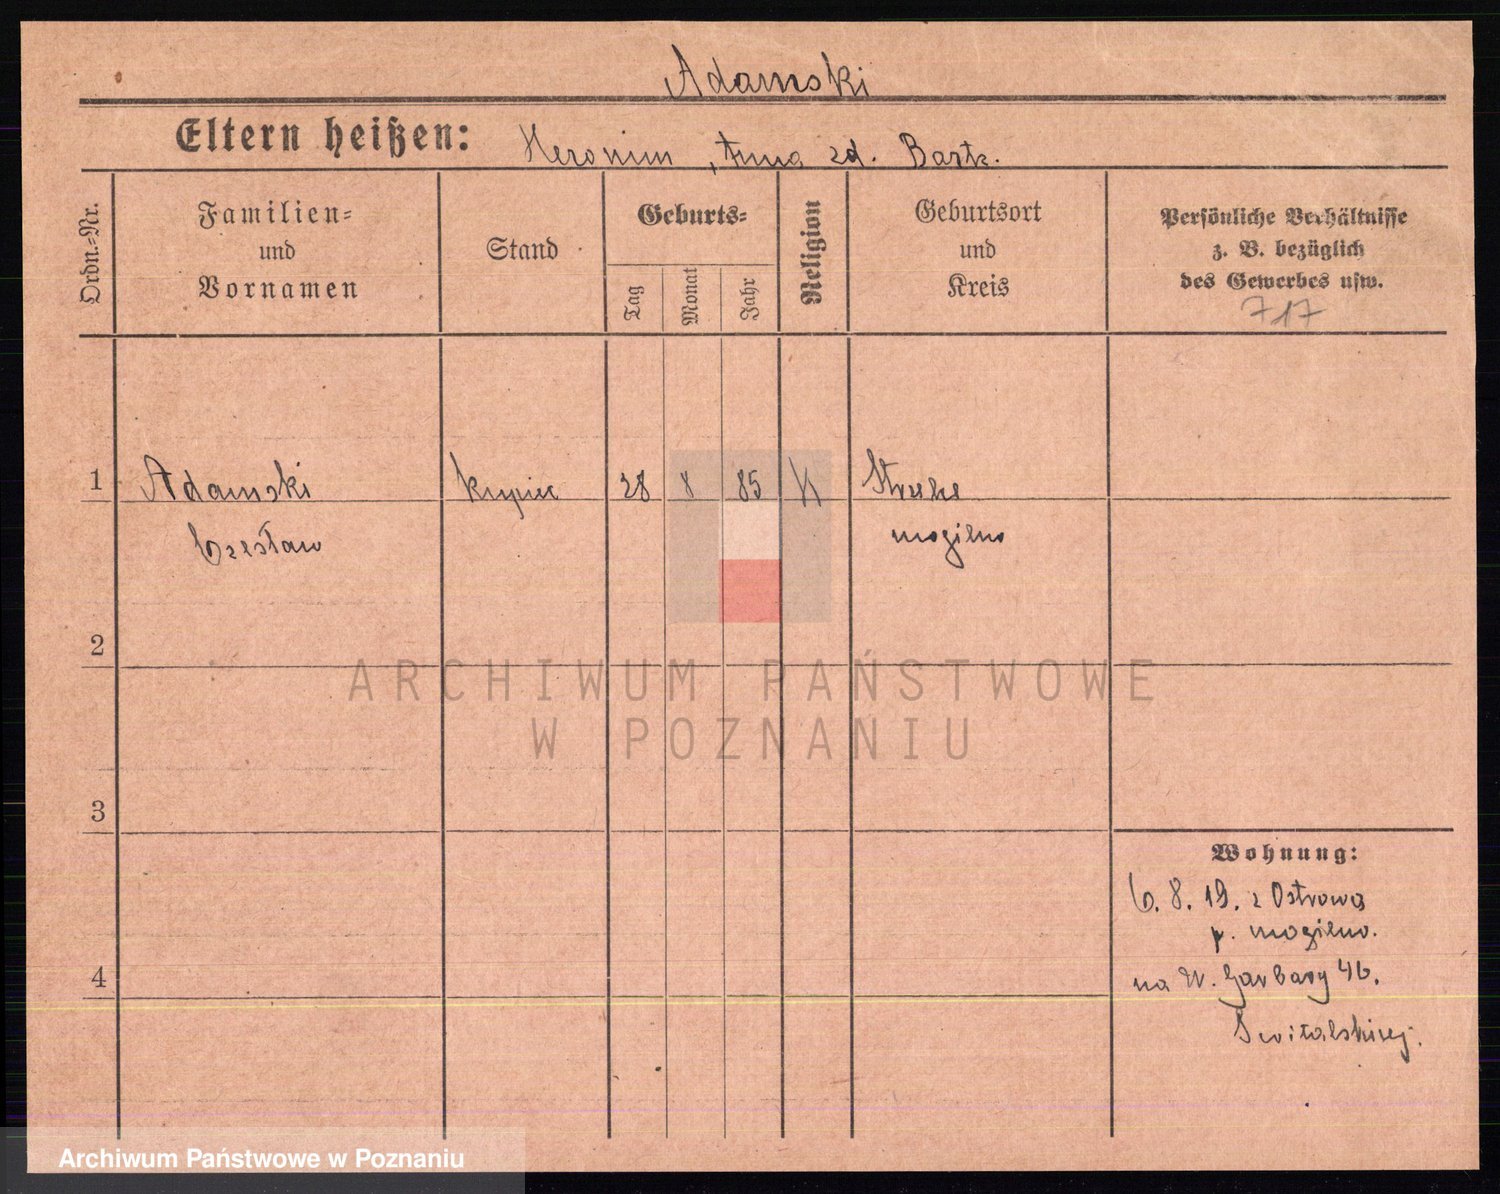 Adamski
Eltern heißen: Heronim, Anna zd. Bartk.
Ordn.-Nr.
Familien-
und
Vornamen
Stand
Geburts-
Tag
Monat
Jahr
Religion
Geburtsort
und
Kreis
Persönliche Verhältnisse
z. B. bezüglich
des Gewerbes usw.
717
1 Adamski kupiec 28 8 85 K
Czesław mogilno
2
ARCHIWUM PAŃSTWOWE
W POZNANIU
3
Wohnung:
6. 8. 19. z Ostrowa
p. mogilno.
4
na W. Garbary 46.
Switalskiej.
Archiwum Państwowe w Poznaniu